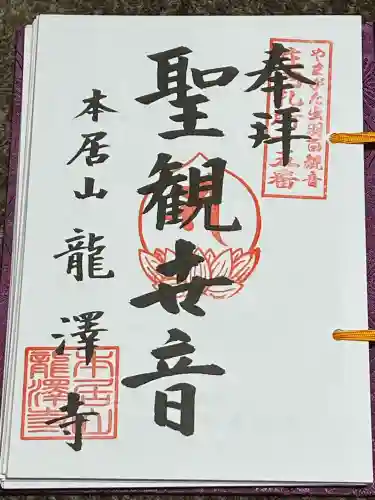 奉拝
やまがた出羽百観音
聖観世音
本居山 龍澤寺
本居山
龍澤寺